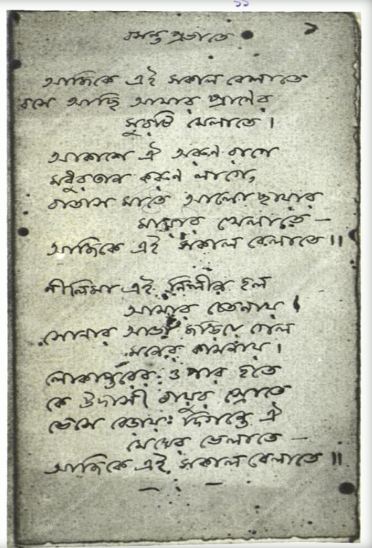 ১১
বসন্ত প্রভাতে
আজিকে এই সকাল বেলাতে
বসে আছি আমার প্রাণের
সুরটি মেলাতে।
আকাশে ঐ অরুণ রাগে
মধুর তান করুণ লাগে,
বাতাস মাতে আলোছায়ার
মায়ার খেলাতে —
আজিকে এই সকাল বেলাতে॥
নীলিমা এই নিলীন হল
আমার চেতনায়।
সোনার আভা জড়িয়ে গেল
মনের কামনায়।
লোকান্তরের ওপার হতে
কে উদাসী বায়ুর স্রোতে
ভেসে বেড়ায় দিগন্তে ঐ
মেঘের ভেলাতে —
আজিকে এই সকাল বেলাতে॥